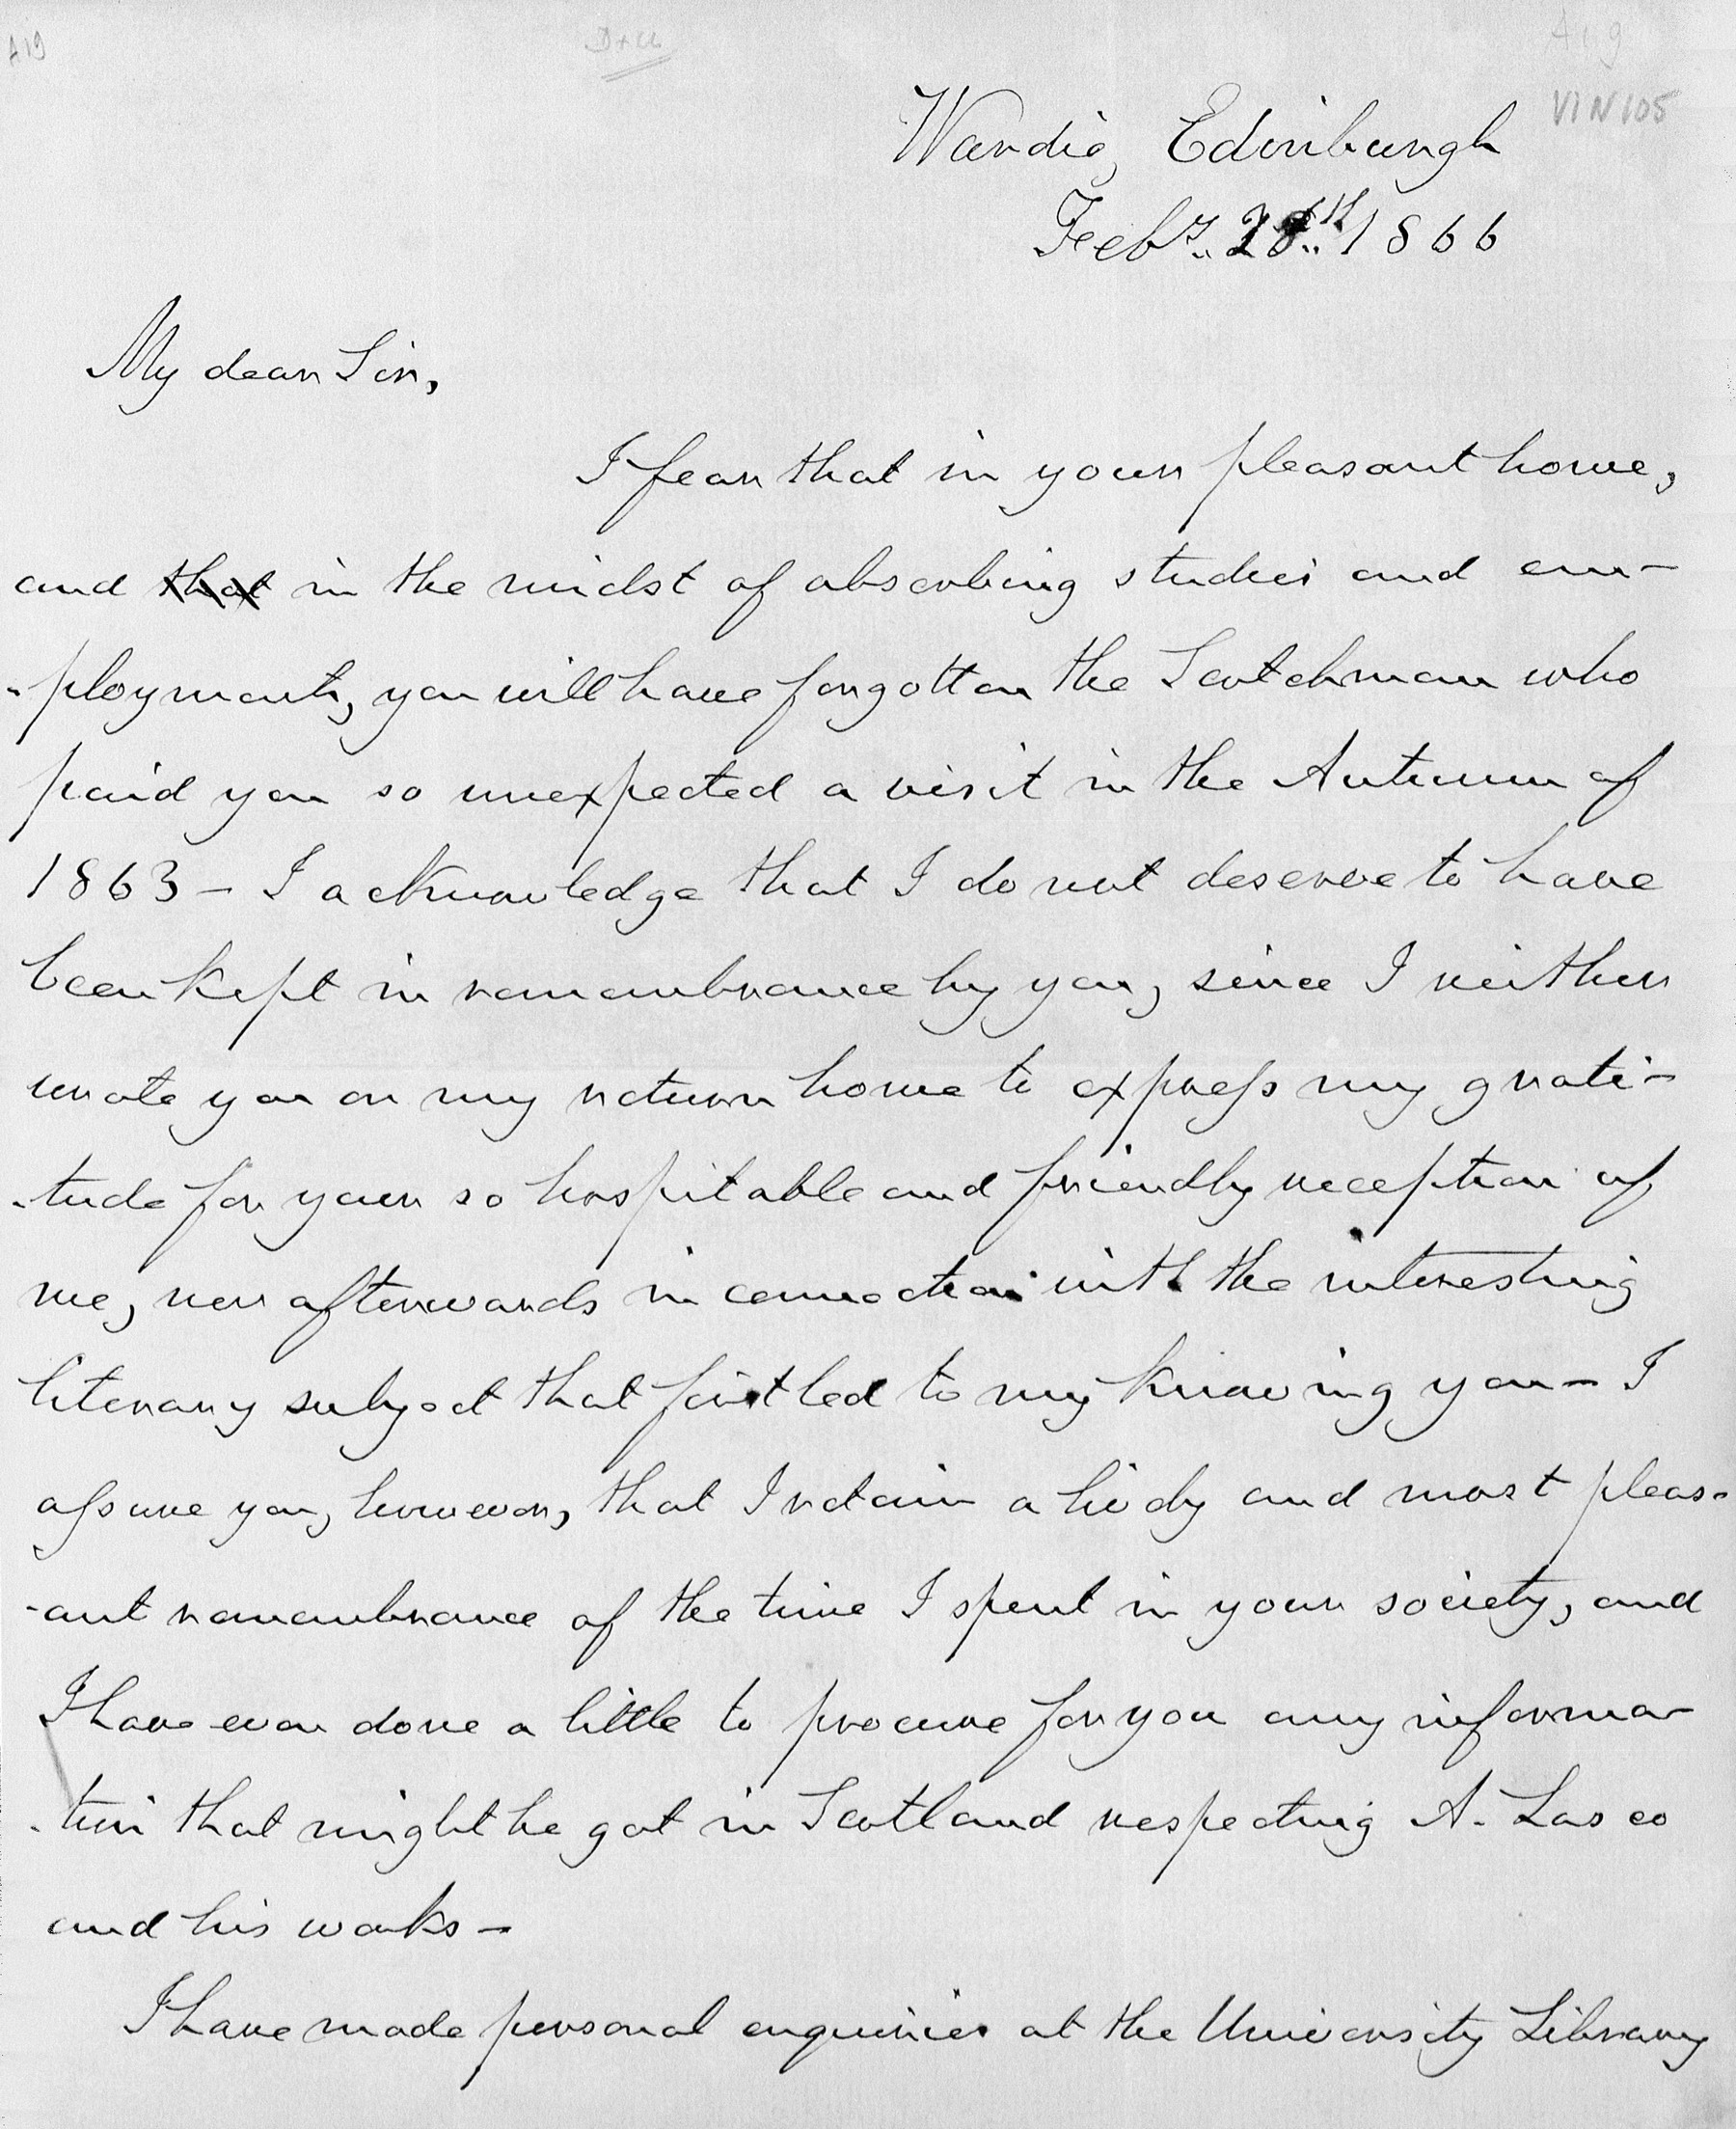 A19
A19
VIN105
Wardie, Edinburgh
Feby. 28th 1866
My dear Sir,
I fear that in your pleasant home,
and that in the midst of absorbing studies and em-
-ployments, you will have forgotten the Scotchman who
paid you so unexpected a visit in the Autumn of
1863 – I acknowledge that I do not deserve to have
been kept in remembrance by you, since I neither
wrote you on my return home to express my grati-
-tude for your so hospitable and friendly reception of
me, nor afterwards in connection with the interesting
literary subject that first led to my knowing you – I
assure you, however, that I retain a lively and most pleas-
-ant remembrance of the time I spent in your society, and
I have even done a little to procure for you any informa-
-tion that might be got in Scotland respecting A. Lasco
and his works –
I have made personal enquiries at the University Library